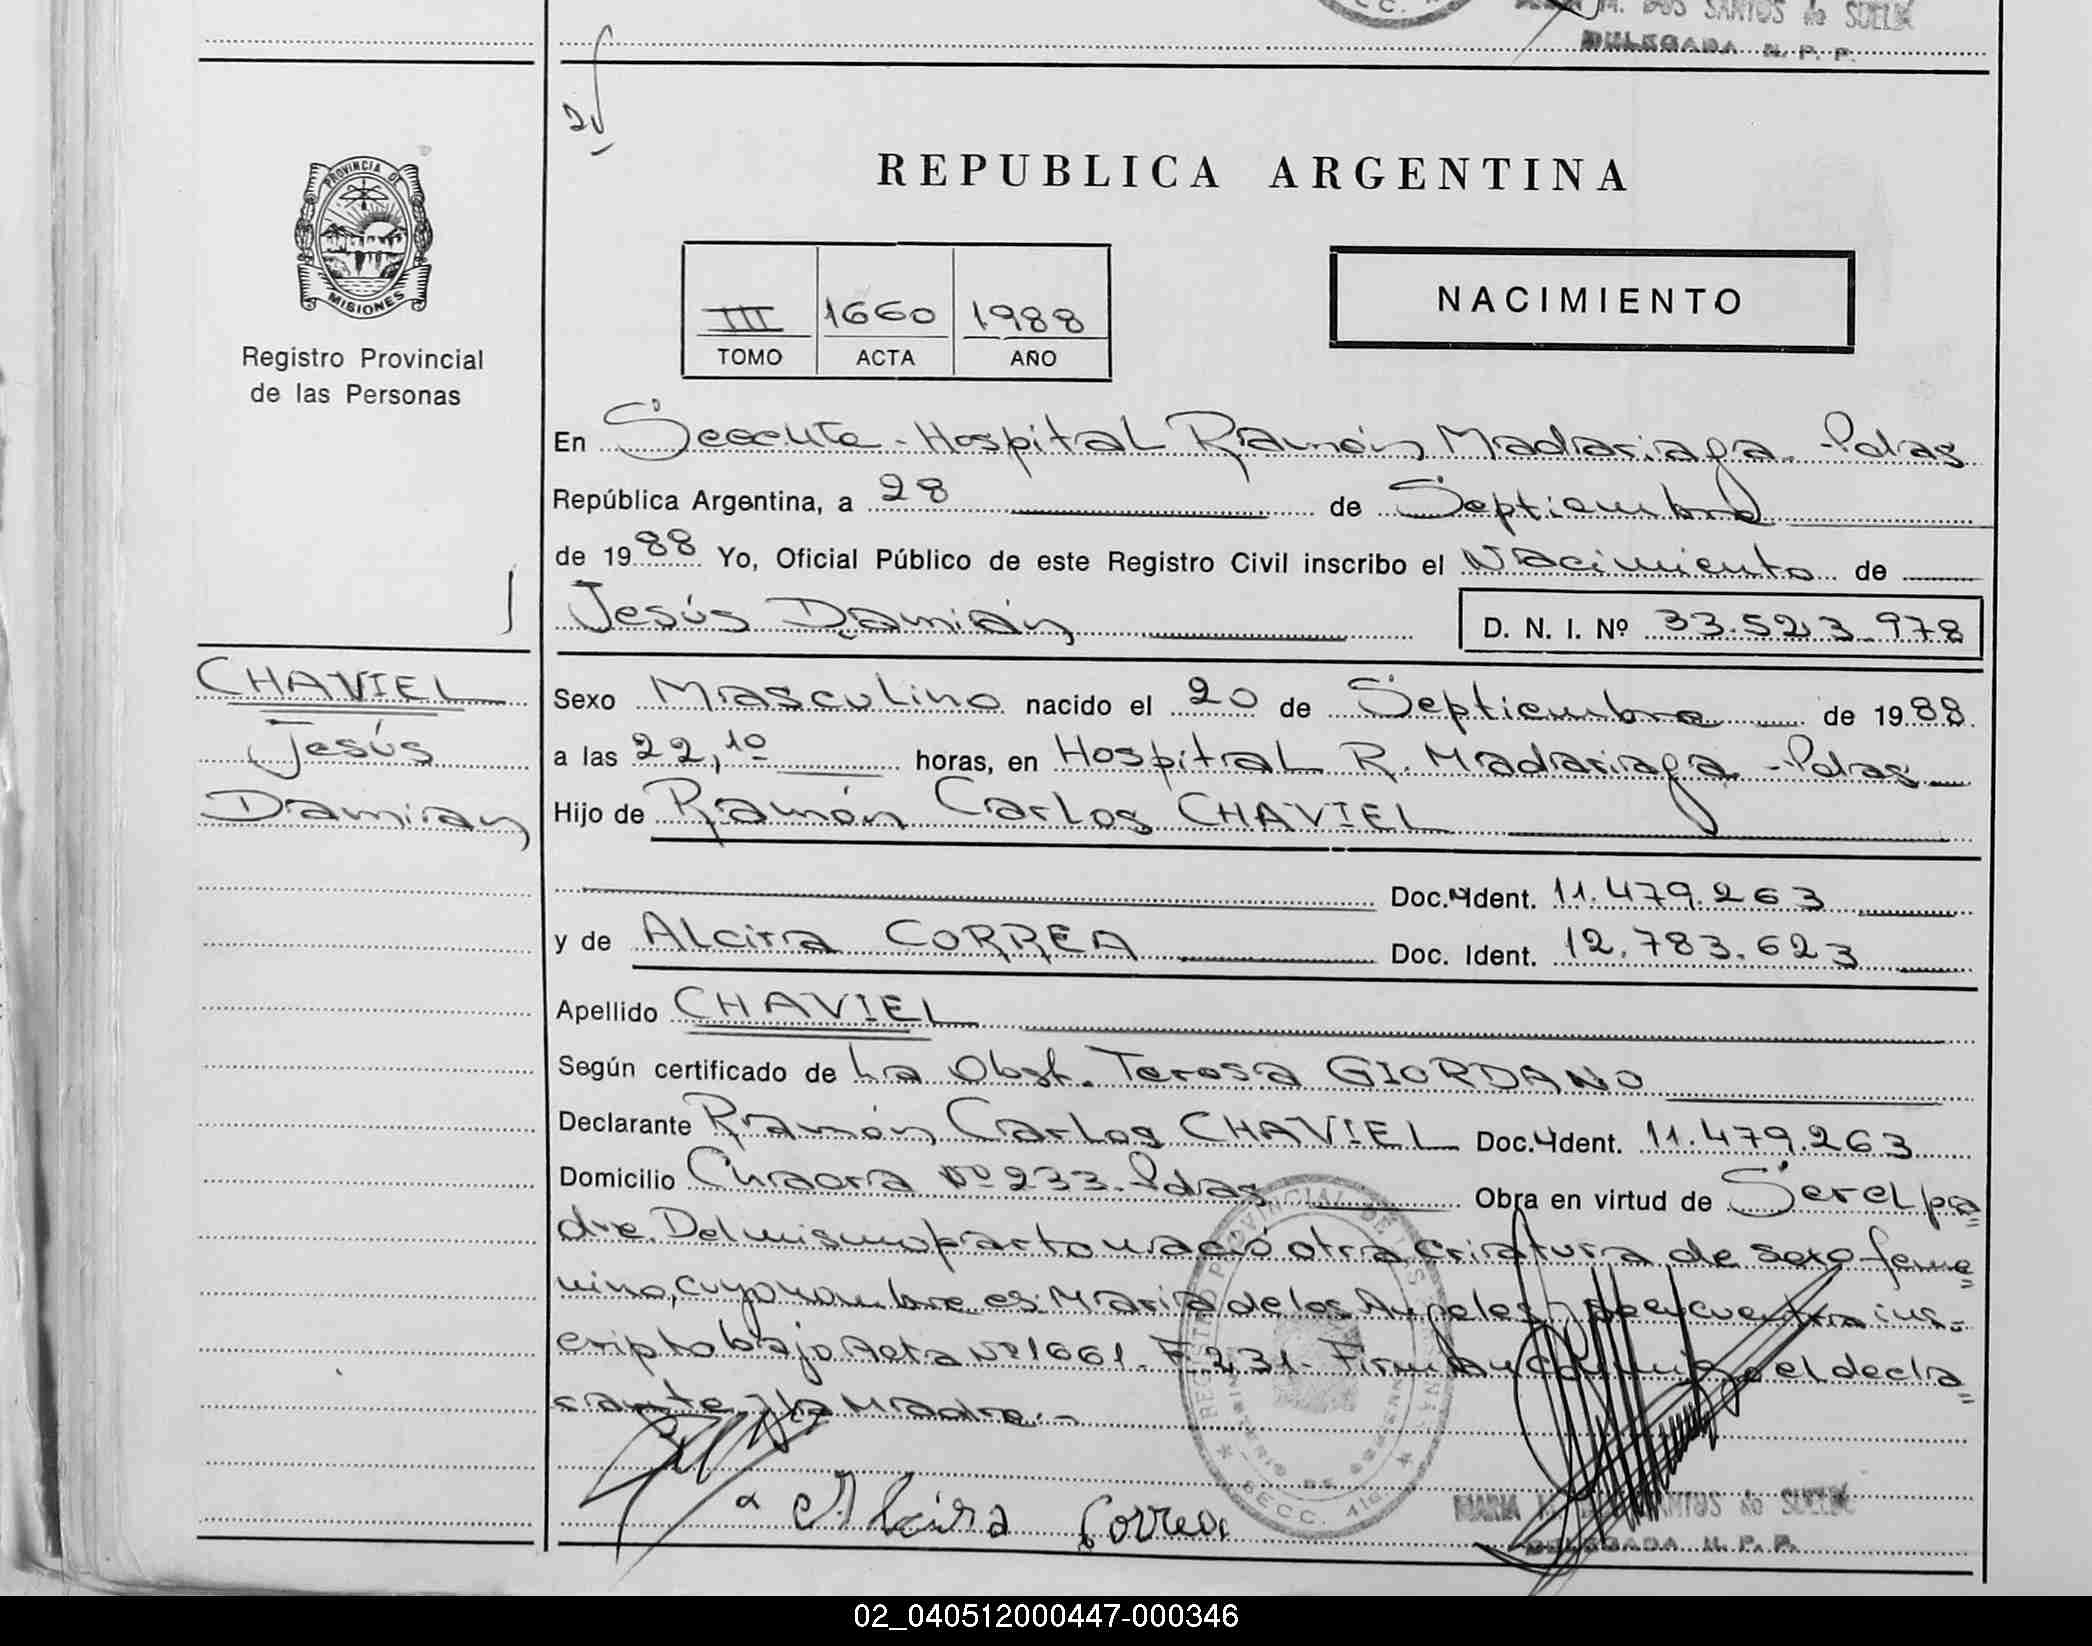 M. DOS SANTOS de SUELDO
DELEGADA N. P. P.
PROVINCIA DE
MISIONES
Registro Provincial
de las Personas
REPUBLICA ARGENTINA
III 1660 1988
TOMO ACTA AÑO
NACIMIENTO
En Seccute - Hospital Ramón Madariaga - Pdas
República Argentina, a 28 de Septiembre
de 1988 Yo, Oficial Público de este Registro Civil inscribo el Nacimiento de
Jesús Damián D. N. I. Nº 33.523.978
CHAVIEL
Jesús
Damian
Sexo Masculino nacido el 20 de Septiembre de 1988
a las 22,10 horas, en Hospital R. Madariaga - Pdas
Hijo de Ramón Carlos CHAVIEL
Doc. Ident. 11.479.263
y de Alcira CORREA Doc. Ident. 12.783.623
Apellido CHAVIEL
Según certificado de La Obst. Teresa GIORDANO
Declarante Ramón Carlos CHAVIEL Doc. Ident. 11.479.263
Domicilio Chacra Nº 233. Pdas Obra en virtud de Ser el pa=
dre. Del mismo parto nació otra criatura de sexo feme=
nino, cuyo nombre es María de los Angeles y se encuentra ins=
cripto bajo Acta Nº 1661. F. 231. Firman conmigo el decla=
rante y la Madre.-
Alcira Correa
DELEGADA N. P. P.
02_040512000447-000346